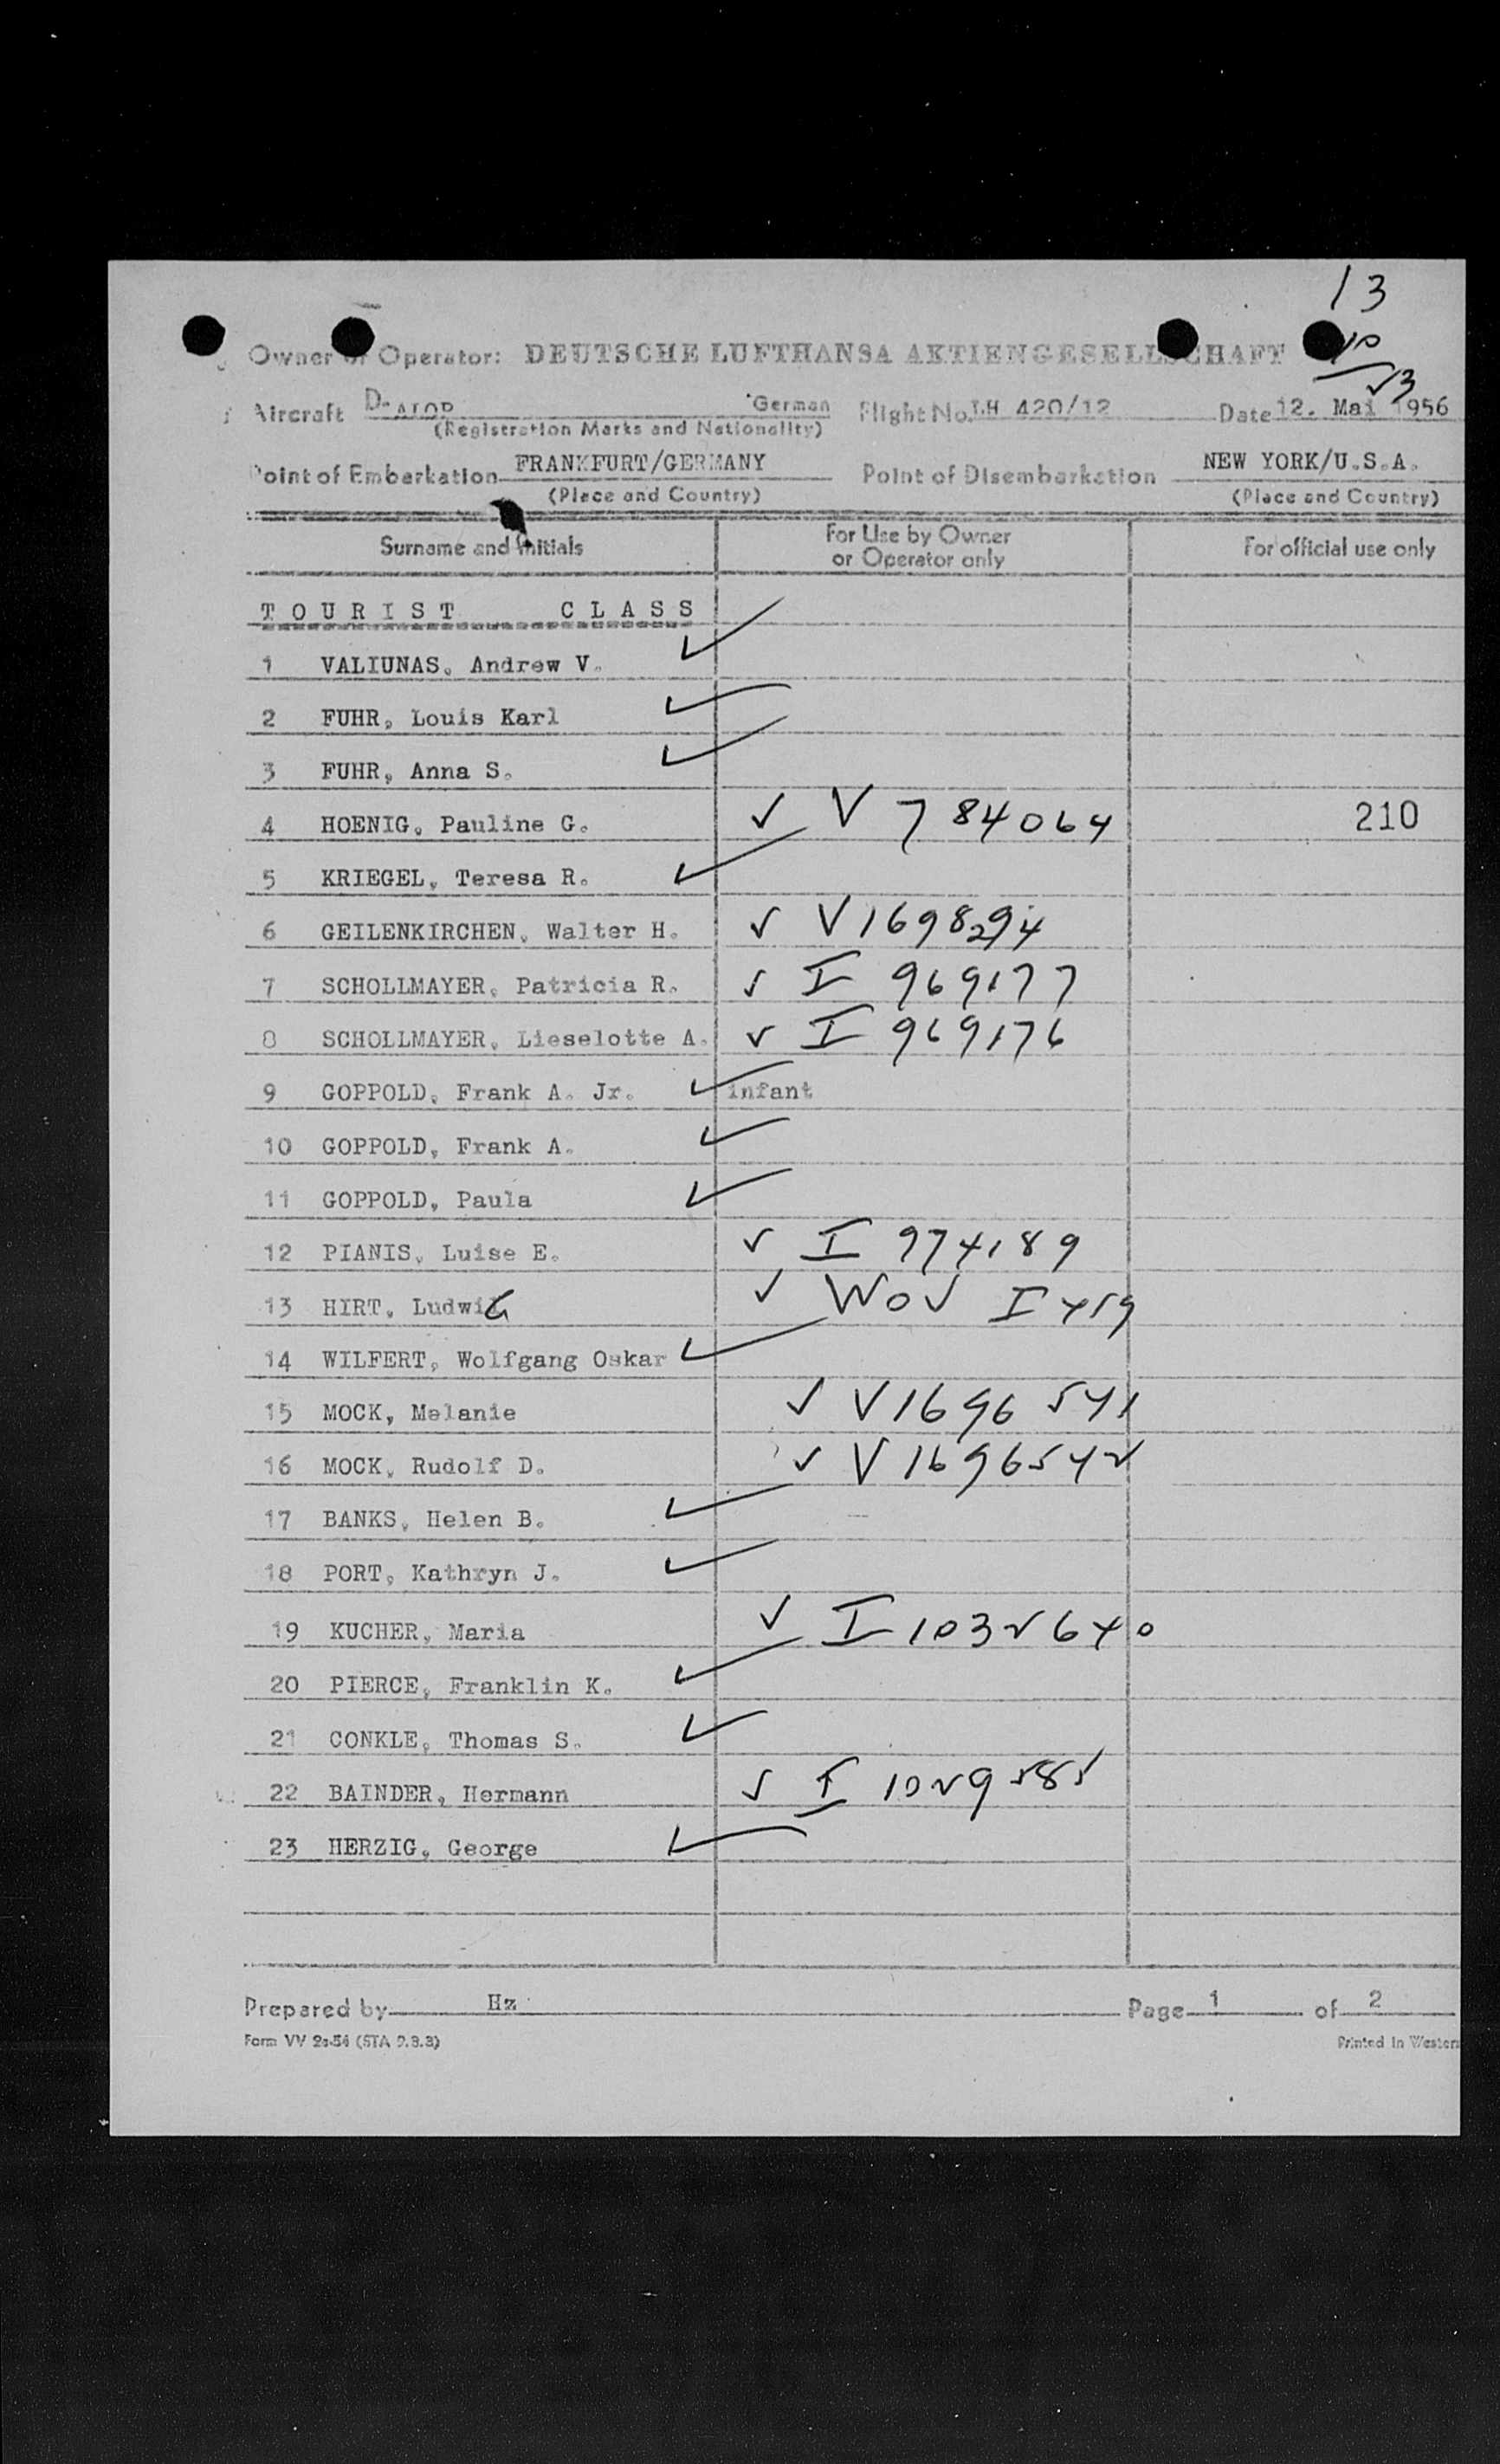 13
10
23
Owner or Operator: DEUTSCHE LUFTHANSA AKTIENGESELLSCHAFT
Aircraft D- German Flight No. LH 420/12 Date 12. Mai 1956
(Registration Marks and Nationality)
Point of Embarkation FRANKFURT/GERMANY Point of Disembarkation NEW YORK/U.S.A.
(Place and Country) (Place and Country)
Surname and Initials For Use by Owner or Operator only For official use only
TOURIST CLASS
1 VALIUNAS, Andrew V. ✓
2 FUHR, Louis Karl ✓
3 FUHR, Anna S. ✓
4 HOENIG, Pauline G. ✓ V 784064 210
5 KRIEGEL, Teresa R. ✓
6 GEILENKIRCHEN, Walter H. ✓ V1698294
7 SCHOLLMAYER, Patricia R. ✓ I 969177
8 SCHOLLMAYER, Lieselotte A. ✓ I 969176
9 GOPPOLD, Frank A. Jr. ✓ infant
10 GOPPOLD, Frank A. ✓
11 GOPPOLD, Paula ✓
12 PIANIS, Luise E. ✓ I 974189
13 HIRT, LudwiG ✓ WOV I 459
14 WILFERT, Wolfgang Oskar ✓
15 MOCK, Melanie ✓ V1696541
16 MOCK, Rudolf D. ✓ V1696542
17 BANKS, Helen B. ✓
18 PORT, Kathryn J. ✓
19 KUCHER, Maria ✓ I 1032640
20 PIERCE, Franklin K. ✓
21 CONKLE, Thomas S. ✓
22 BAINDER, Hermann ✓ I 1029585
23 HERZIG, George ✓
Prepared by Hz Page 1 of 2
Form VV 2a-54 (STA 9.3.3) Printed in Western